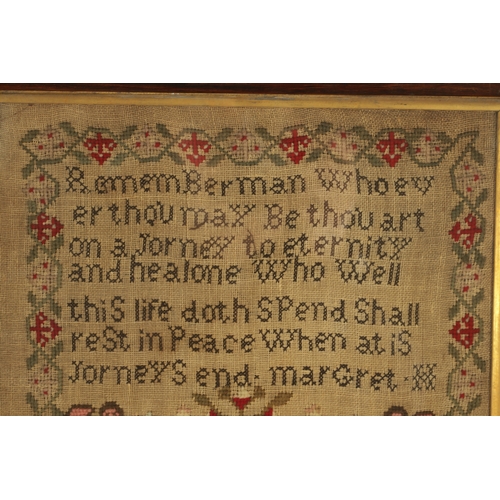 RememBerman Whoev
er thou mayBe thou art
on a Jorney to eternity
and healone Who Well
thiS life doth SPend Shall
reSt in Peace When at iS
JorneyS end. marGret. H